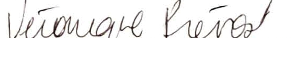 Véronique Prévost